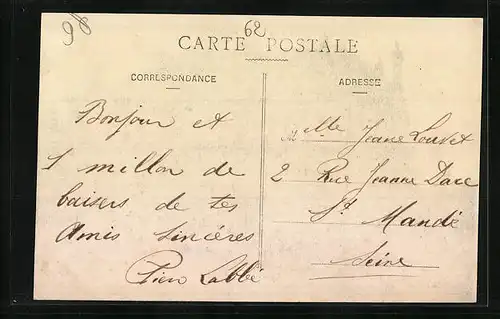 62
CARTE POSTALE
CORRESPONDANCE
Bonjour et
1 millon de
baisers de tes
amis sincères
Labbé
ADRESSE
Mlle Jeane Louvet
2 Rue Jeanne Darc
St Mandé
Seine